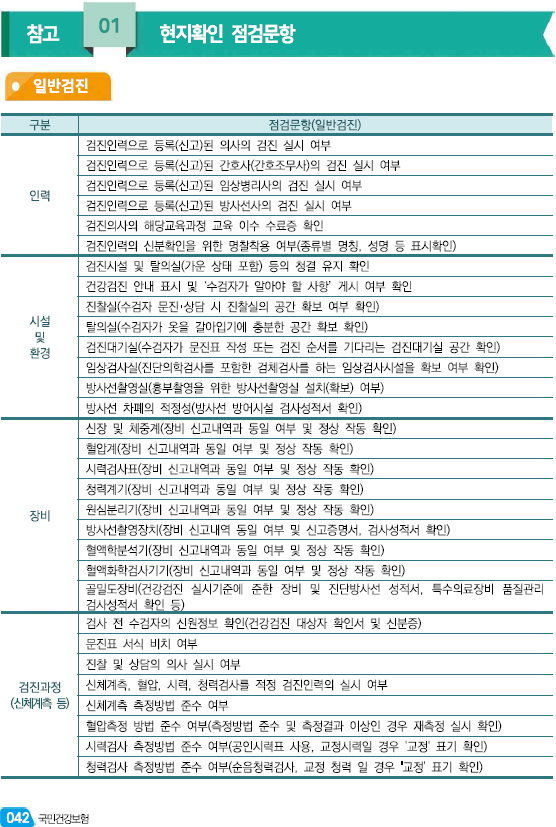 참고 01 현지확인 점검문항
일반검진
구분 점검문항(일반검진)
인력
검진인력으로 등록(신고)된 의사의 검진 실시 여부
검진인력으로 등록(신고)된 간호사(간호조무사)의 검진 실시 여부
검진인력으로 등록(신고)된 임상병리사의 검진 실시 여부
검진인력으로 등록(신고)된 방사선사의 검진 실시 여부
검진의사의 해당교육과정 교육 이수 수료증 확인
검진인력의 신분확인을 위한 명찰착용 여부(종류별 명칭, 성명 등 표시확인)
시설
및
환경
검진시설 및 탈의실(가운 상태 포함) 등의 청결 유지 확인
건강검진 안내 표시 및 '수검자가 알아야 할 사항' 게시 여부 확인
진찰실(수검자 문진·상담 시 진찰실의 공간 확보 여부 확인)
탈의실(수검자가 옷을 갈아입기에 충분한 공간 확보 확인)
검진대기실(수검자가 문진표 작성 또는 검진 순서를 기다리는 검진대기실 공간 확인)
임상검사실(진단의학검사를 포함한 검체검사를 하는 임상검사시설을 확보 여부 확인)
방사선촬영실(흉부촬영을 위한 방사선촬영실 설치(확보) 여부)
방사선 차폐의 적정성(방사선 방어시설 검사성적서 확인)
장비
신장 및 체중계(장비 신고내역과 동일 여부 및 정상 작동 확인)
혈압계(장비 신고내역과 동일 여부 및 정상 작동 확인)
시력검사표(장비 신고내역과 동일 여부 및 정상 작동 확인)
청력계기(장비 신고내역과 동일 여부 및 정상 작동 확인)
원심분리기(장비 신고내역과 동일 여부 및 정상 작동 확인)
방사선촬영장치(장비 신고내역 동일 여부 및 신고증명서, 검사성적서 확인)
혈액학분석기(장비 신고내역과 동일 여부 및 정상 작동 확인)
혈액화학검사기기(장비 신고내역과 동일 여부 및 정상 작동 확인)
골밀도장비(건강검진 실시기준에 준한 장비 및 진단방사선 성적서, 특수의료장비 품질관리
검사성적서 확인 등)
검진과정
(신체계측 등)
검사 전 수검자의 신원정보 확인(건강검진 대상자 확인서 및 신분증)
문진표 서식 비치 여부
진찰 및 상담의 의사 실시 여부
신체계측, 혈압, 시력, 청력검사를 적정 검진인력의 실시 여부
신체계측 측정방법 준수 여부
혈압측정 방법 준수 여부(측정방법 준수 및 측정결과 이상인 경우 재측정 실시 확인)
시력검사 측정방법 준수 여부(공인시력표 사용, 교정시력일 경우 '교정' 표기 확인)
청력검사 측정방법 준수 여부(순음청력검사, 교정 청력 일 경우 "교정' 표기 확인)
042 국민건강보험